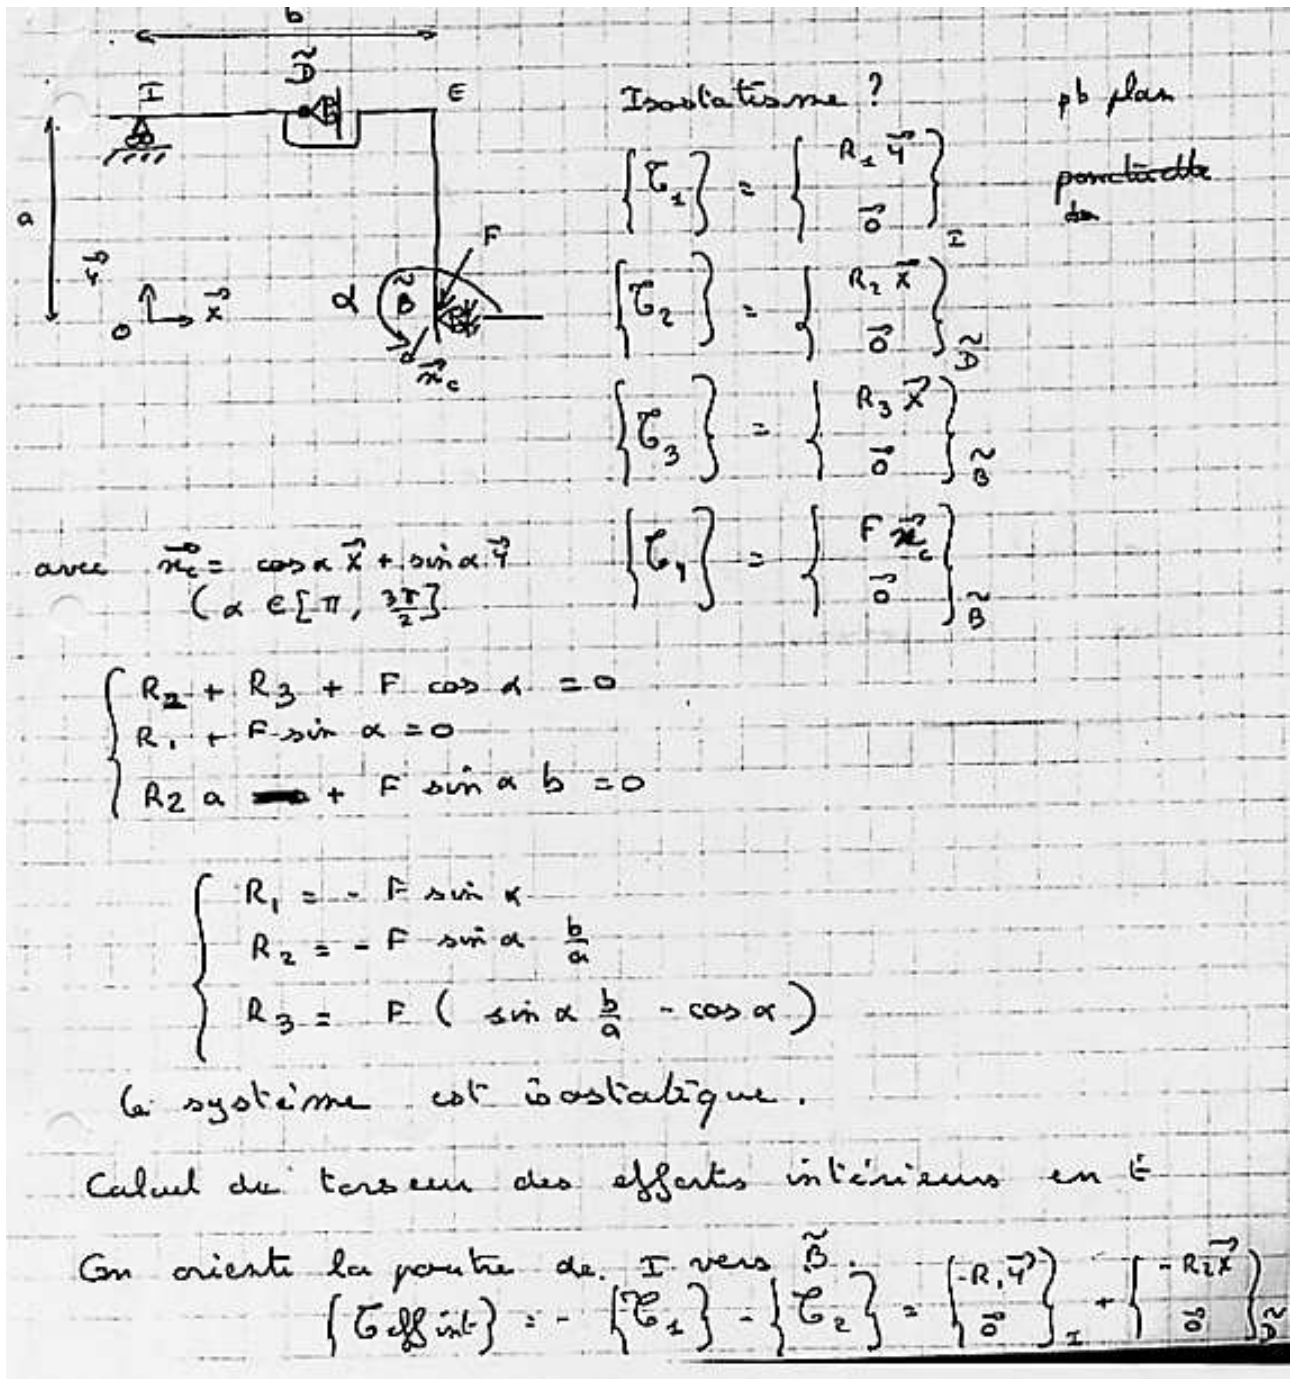 b
D̃
I
E
Isostatisme ?
pb plan
{𝒯₁} = { R₁ y⃗ / 0⃗ }_I
ponctuelle
a
F
y⃗
α
B̃
O
x⃗
x⃗c
{𝒯₂} = { R₂ x⃗ / 0⃗ }_D̃
{𝒯₃} = { R₃ x⃗ / 0⃗ }_B̃
{𝒯₄} = { F x⃗c / 0⃗ }_B̃
avec x⃗c = cos α x⃗ + sin α y⃗
(α ∈ [π, 3π/2]
R₂ + R₃ + F cos α = 0
R₁ + F sin α = 0
R₂ a + F sin α b = 0
R₁ = - F sin α
R₂ = - F sin α b/a
R₃ = F ( sin α b/a - cos α )
Le système est isostatique.
Calcul du torseur des efforts intérieurs en E
On oriente la poutre de I vers B̃.
{𝒯eff int} = - {𝒯₁} - {𝒯₂} = { -R₁ y⃗ / 0⃗ }_I + { -R₂ x⃗ / 0⃗ }_D̃